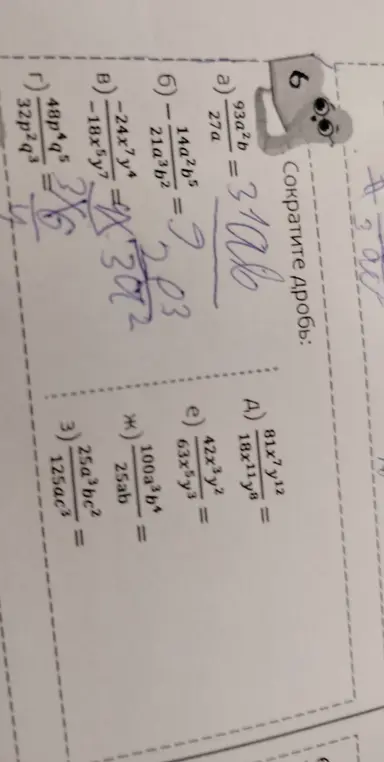 6
Сократите дробь:
а) 93a²b/27a = 31ab
б) − 14a²b⁵/21a³b² =
в) −24x⁷y⁴/−18x⁵y⁷ =
г) 48p⁴q⁵/32p²q³ =
д) 81x⁷y¹²/18x¹¹y⁸ =
е) 42x³y²/63x⁵y³ =
ж) 100a³b⁴/25ab =
з) 25a³bc²/125ac³ =